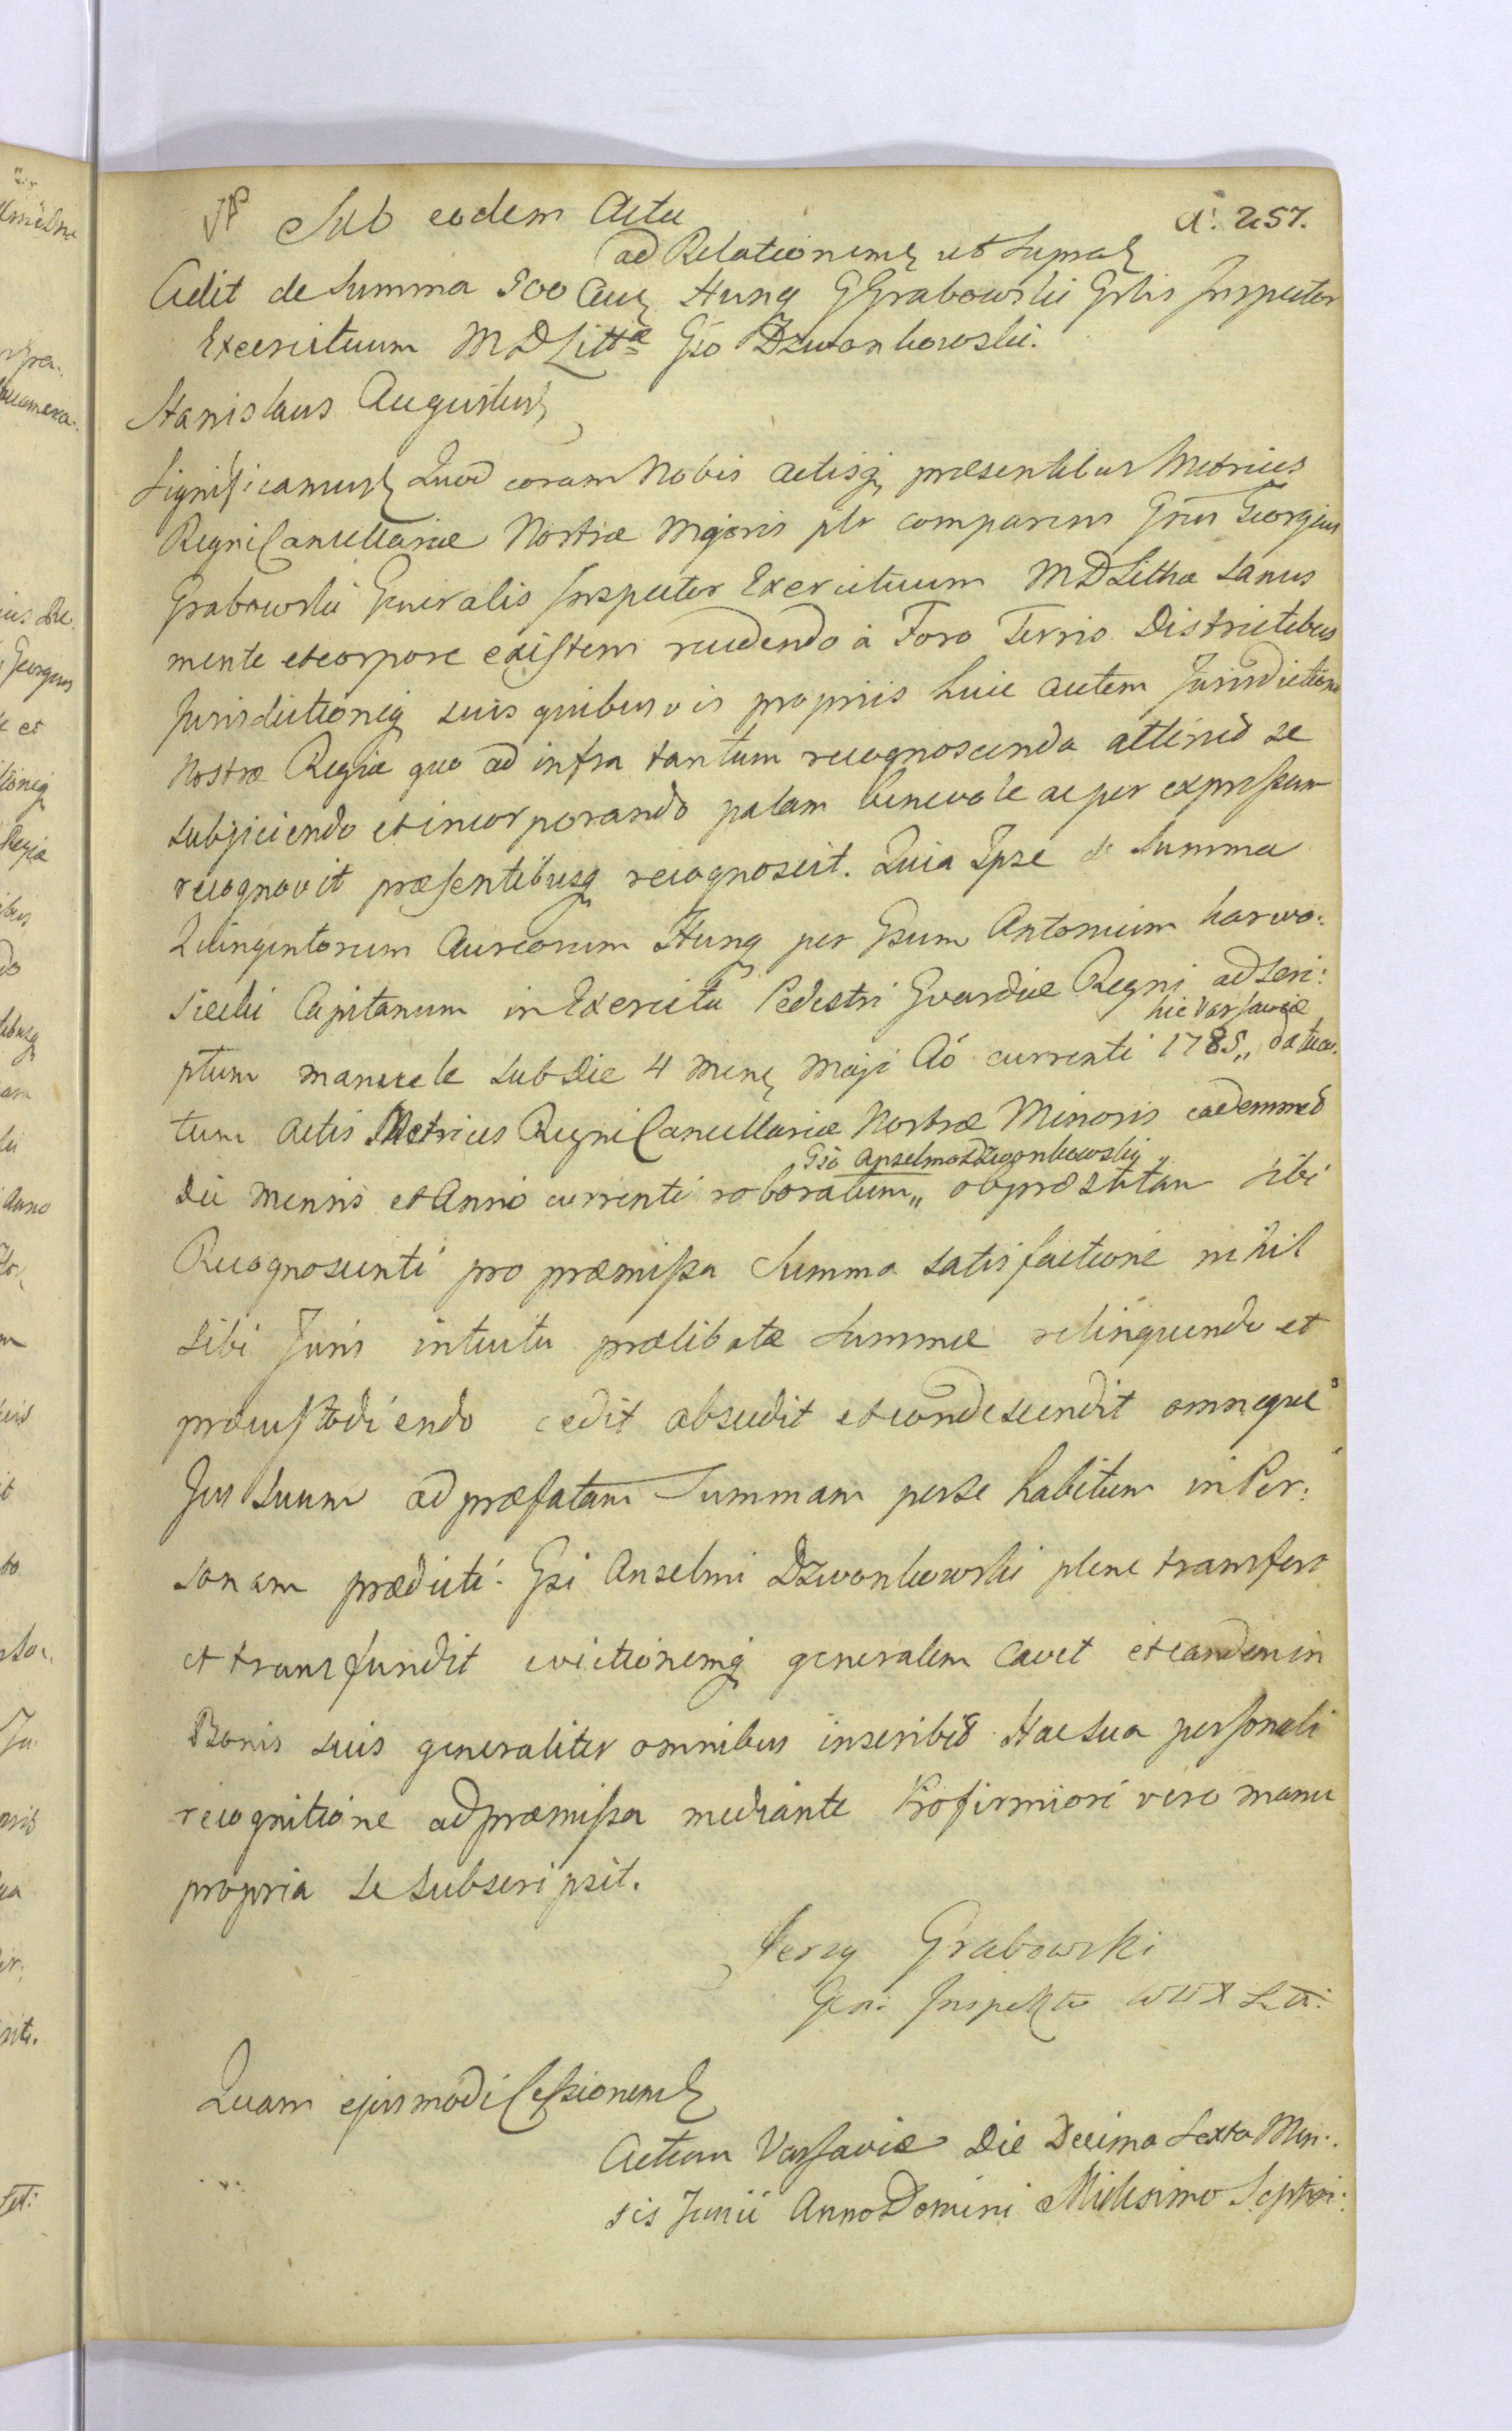 VP Sub eodem Actu
A. 257.
ad Relationem ut supra
Cedit de Summa 500 Aur Hung G Grabowski Grlis Inspector
Exercituum MDLittæ Gso Dzwonkowski.
Stanislaus Augustus
Significamus Quod coram Nobis Actisq præsentibus Metrices
Regni Cancellariæ Nostræ Majoris plr comparens Grsus Georgius
Grabowski Generalis Inspector Exercituum MDLithæ sanus
mente et corpore existens recedendo à Foro Terris Districtibus
Jurisdictioniq suis quibusvis propriis huic autem Jurisdictioni
Nostræ Regiæ quo ad infra tantum recognoscenda attined se
subjiciendo et incorporando palam benevole ac per expressum
recognovit præsentibusq recognoscit. Quia Ipse de Summa
Quingentorum Aureorum Hung per Gsum Antonium karwo:
siecki Capitaneum in Exercitu Pedestri Gvardiæ Regni adscri:
hic Varsaviæ
ptum manuale sub die 4 mens Maji Ao currenti 1785,, datum
tum Actis Metrices Regni Cancellariæ Nostræ Minoris eademmed
Gso Anselmo Dzwonkowski
die mensis et Anni currenti roboratum,, ob præstitam sibi
Recognoscenti pro præmissa Summa satisfactione nihil
sibi Juris intuitu prælibatæ Summæ relinquendo et
præcustodiendo cedit abscedit et condescendit omneque
Jus suum ad præfatam Summam per se habitum in Per:
sonam prædicti Gsi Anselmi Dzwonkowski plene transfert
et transfundit evictionemq generalem cavet et eandem in
Bonis suis generaliter omnibus inscribit Hac sua personali
recognitione ad præmissa mediante Pro firmiori vero manu
propria se subscripsit.
Jerzy Grabowski
Gen: Inspektor WWX Litt:
Quam ejusmodi Cessionem
Actum Varsaviæ Die Decima Sexta Men:
sis Junii Anno Domini Millesimo Septin: